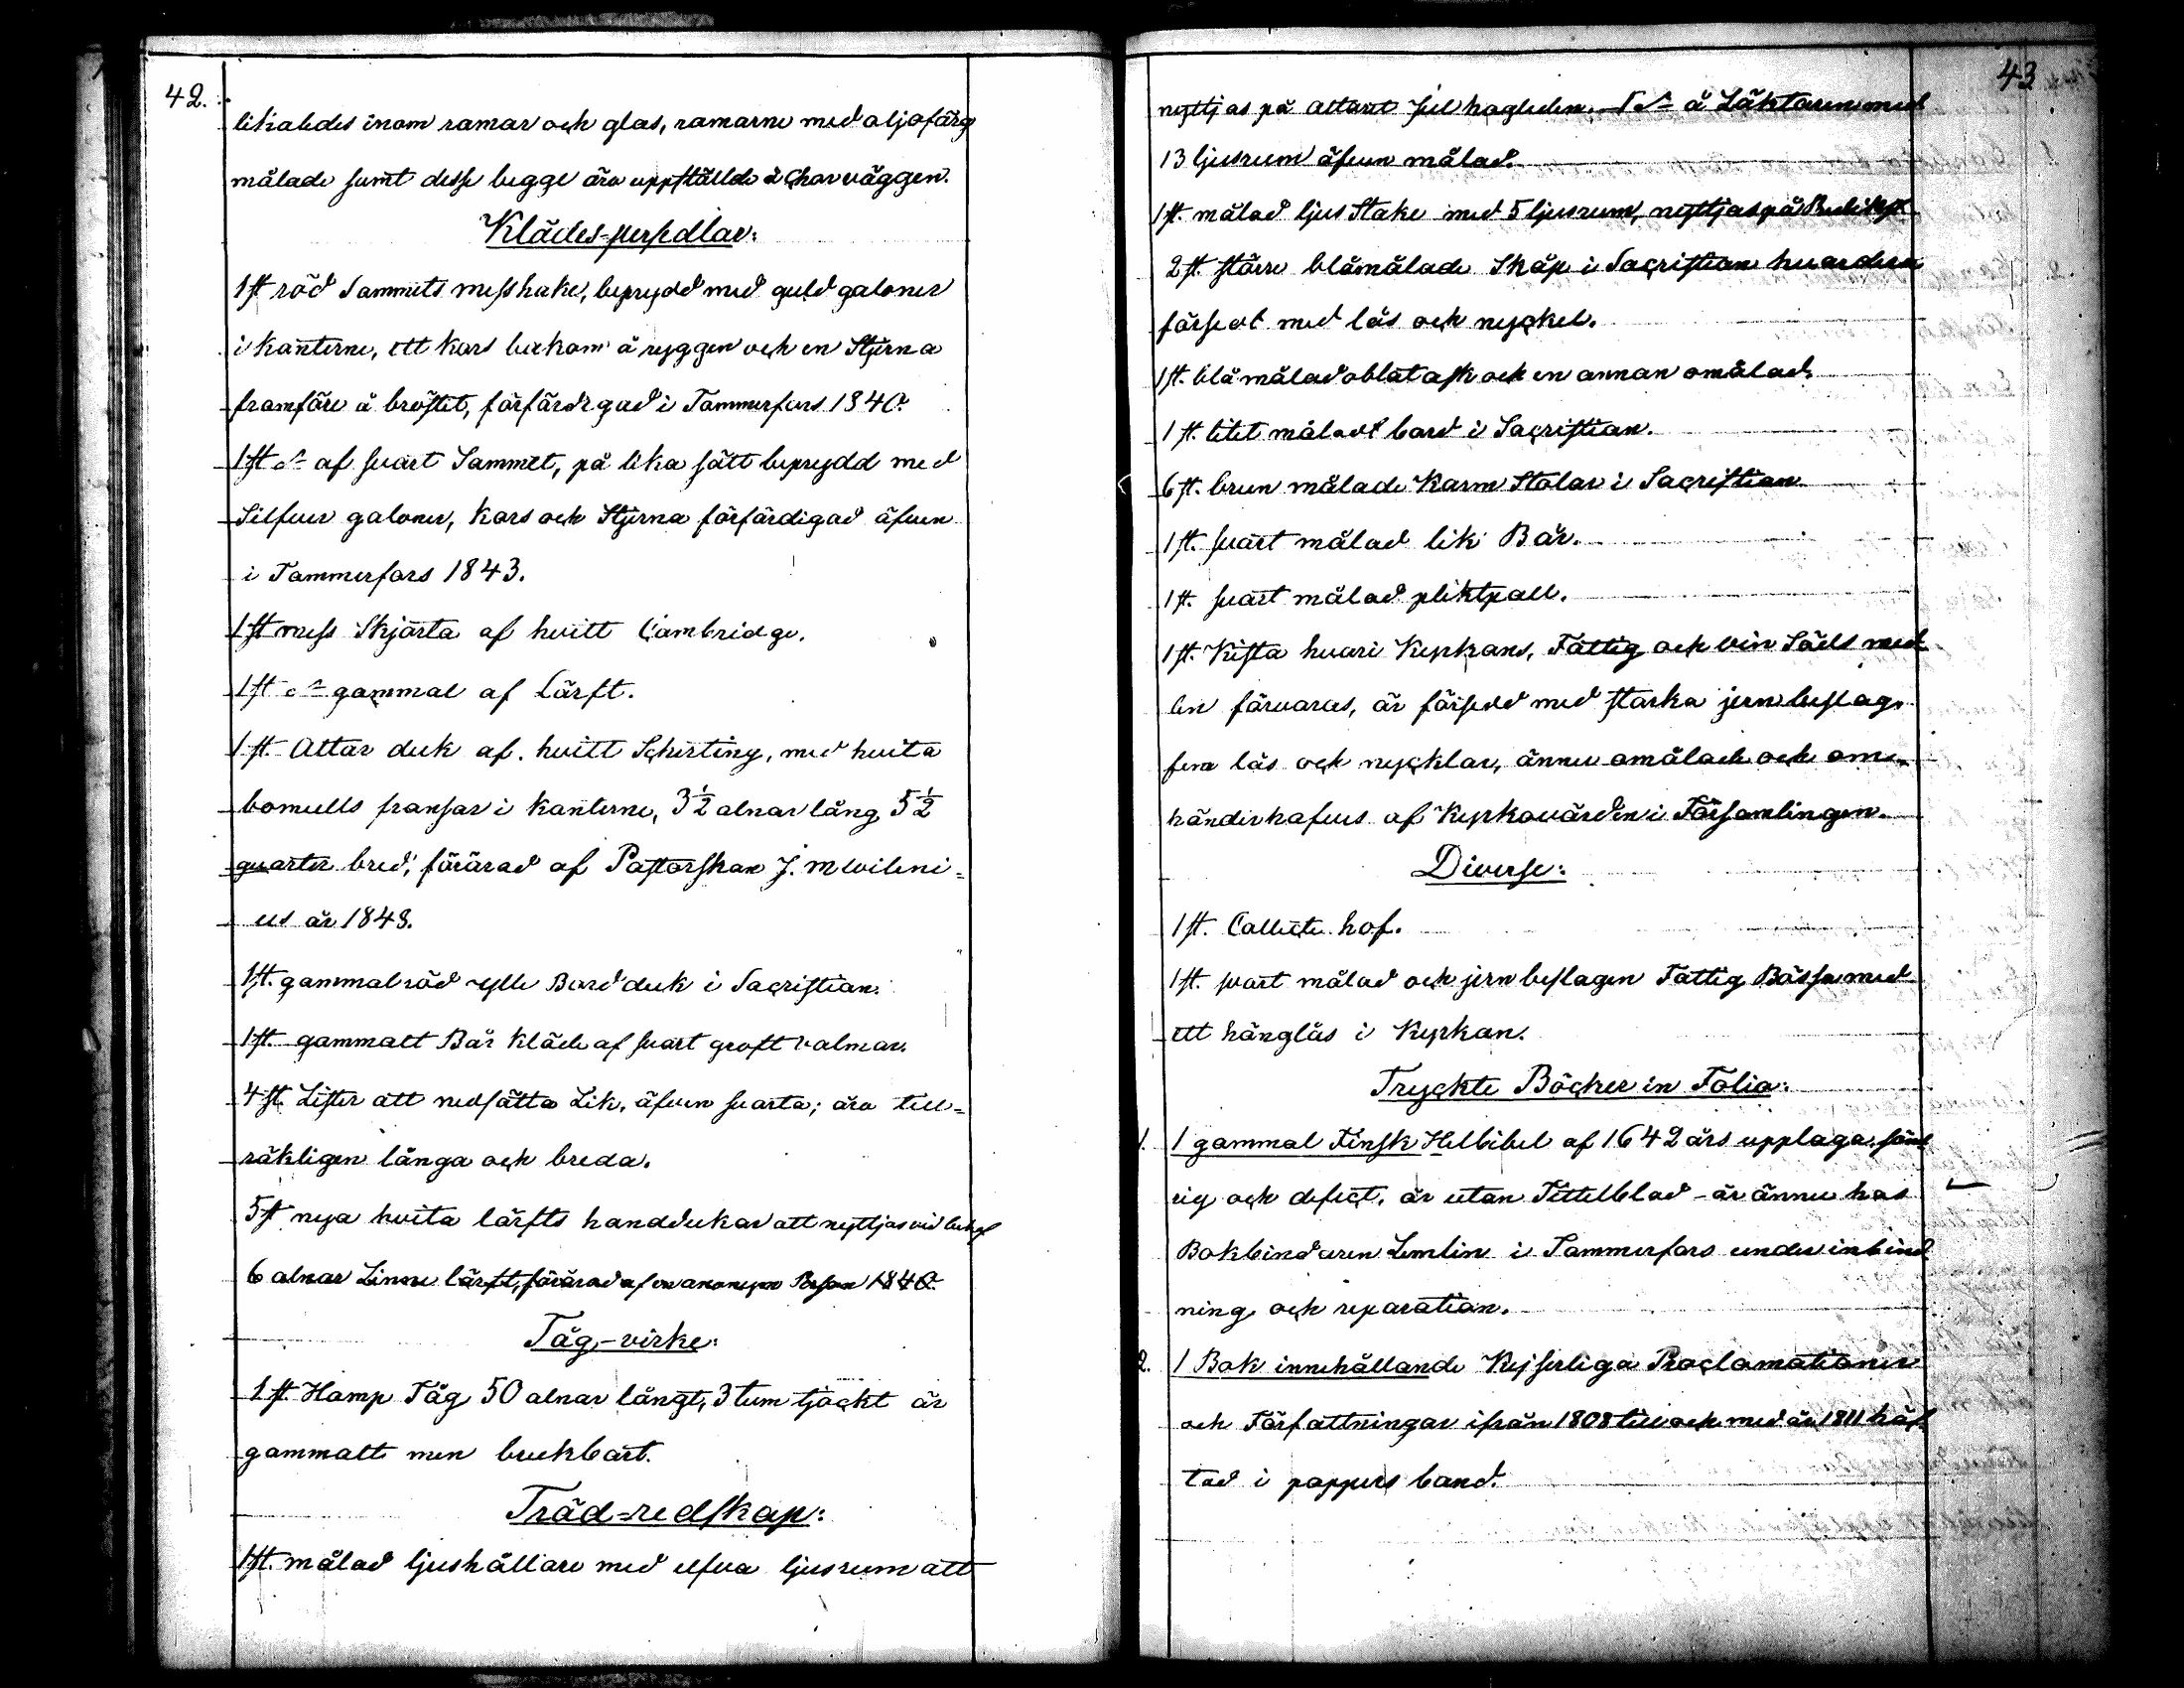 42.
likaledes inom ramar och glas, ramarne med oljofärg
målade samt desse begge äro uppstälde å chorväggen.
Klädes-persedlar:
1 st röd Sammets messhake, beprydd med guld galoner
i kanterne, ett kors bakom å ryggen och en Stjerna
framföre å bröstet, förfärdigad i Tammerfors 1840.
1 st do af svart Sammet, på lika sätt beprydd med
Silfver galoner, Kors och Stjerna förfärdigad äfven
i Tammerfors 1843.
1 st mess Skjorta af hvitt Cambridge.
1 st do gammal af Lärft.
1 st. Altar duk af hvitt Schirting, med hvita
bomulls fransar i kanterne, 3 1/2 alnar lång, 5 1/2
quarter bred, förärad af Pastorskan J. M Wileni=
us år 1843.
1 st. gammal röd ylle Bord duk i Sacristian.
1 st. gammalt Bår kläde af svart groft valmar.
4 st. Lister att nedsätta Lik, äfven svarta; äro till=
räkligen långa och breda.
5 st nya hvita lärfts handdukar att nyttjas vid behof
6 alnar Linne lärft, förärad af en anonym Person 1840.
Tåg-virke:
1 st. Hamp Tåg 50 alnar långt, 3 tum tjockt är
gammalt men brukbart.
Träd=redskap:
1 st. målad ljushållare med elfva ljusrum att
43
nyttjas på altaret Jul hogtiden. 1 do å Läktaren med
13 ljusrum äfven målad.
1 st. målad ljus Stake med 5 ljusrum, nyttjas på Predikst
2 st. större blåmålade Skåp i Sacristian hvardera
försedt med lås och nyckel.
1 st. blå målad oblat ask och en annan omålad.
1 st. litet måladt bord i Sacristian.
6 st. brun målade Karm Stolar i Sacristian
1 st. svart målad lik Bår.
1 st. svart målad pliktpall.
1 st. Kista hvari Kyrkans, Fattig och vin Säds med
len förvaras, är försedd med starka jern beslag,
fem lås och nycklar, ännu omålade och om
händerhafves af Kyrkovärden i Församlingen.
Diverse:
1 st. Collecte hof.
1 st. svart målad och jern beslagen Fattig Bössa med
ett hänglås i Kyrkan.
Tryckte Böcker in Folio:
1. 1 gammal Finsk Helbibel af 1642 års upplaga, sönd
rig och defect, är utan Tittelblad - är ännu hos
Bokbindaren Lemlin i Tammerfors under inbind
ning och reparation.
2. 1 Bok innehållande Kejserliga Proclamationer
och Författningar ifrån 1808 till och med år 1811 häf
tad i pappers band.